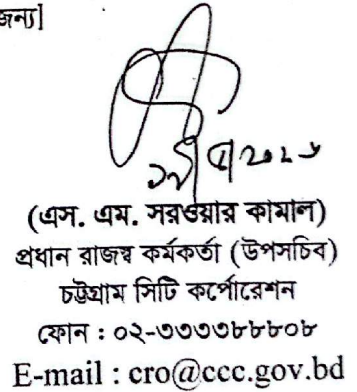 জন্য]
(এস. এম. সরওয়ার কামাল)
প্রধান রাজস্ব কর্মকর্তা (উপসচিব)
চট্টগ্রাম সিটি কর্পোরেশন
ফোন : ০২-৩৩৩৩৮৮৮০৮
E-mail : cro@ccc.gov.bd